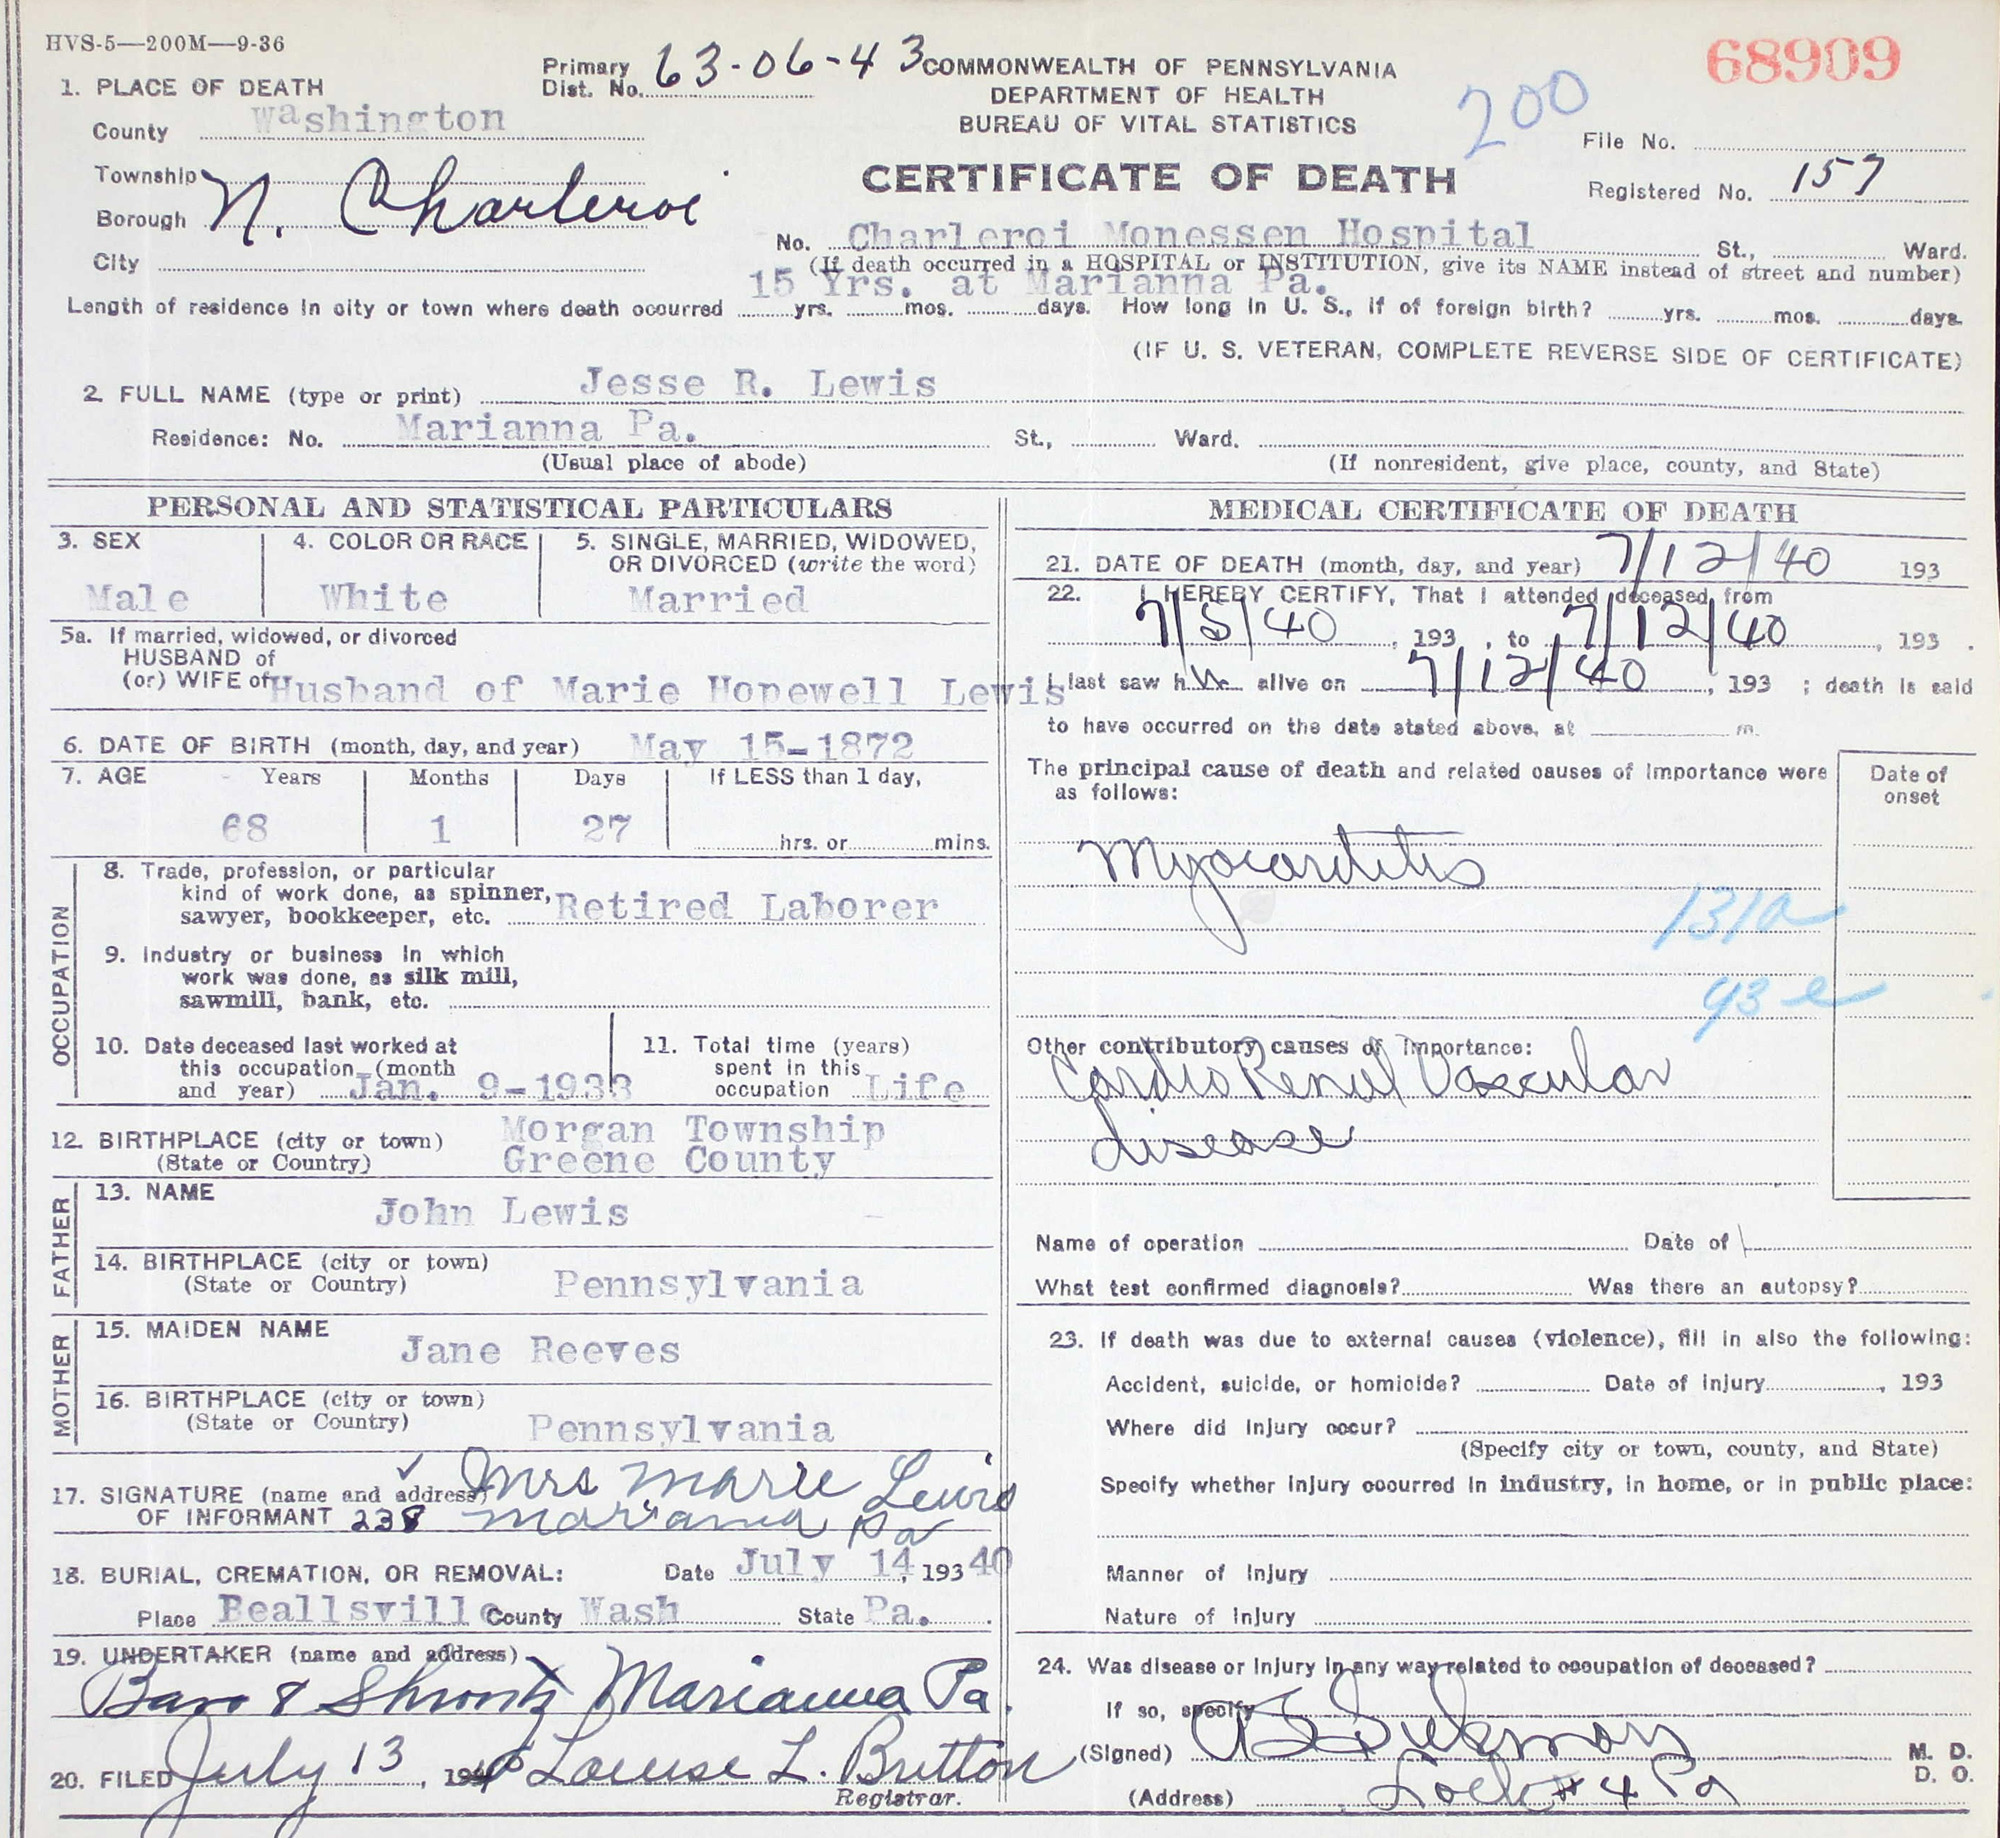 HVS-5—200M—9-36
68909
Primary
Dist. No. 63-06-43
COMMONWEALTH OF PENNSYLVANIA
DEPARTMENT OF HEALTH
BUREAU OF VITAL STATISTICS
200
CERTIFICATE OF DEATH
File No.
Registered No. 157
1. PLACE OF DEATH
County Washington
Township
Borough N. Charleroi
City
No. Charleroi Monessen Hospital St., Ward.
(If death occurred in a HOSPITAL or INSTITUTION, give its NAME instead of street and number)
15 Yrs. at Marianna Pa.
Length of residence in city or town where death occurred yrs. mos. days. How long in U. S., if of foreign birth? yrs. mos. days.
(IF U. S. VETERAN, COMPLETE REVERSE SIDE OF CERTIFICATE)
2. FULL NAME (type or print) Jesse R. Lewis
Residence: No. Marianna Pa. St., Ward.
(Usual place of abode) (If nonresident, give place, county, and State)
PERSONAL AND STATISTICAL PARTICULARS
3. SEX
Male
4. COLOR OR RACE
White
5. SINGLE, MARRIED, WIDOWED,
OR DIVORCED (write the word)
Married
5a. If married, widowed, or divorced
HUSBAND of
(or) WIFE of Husband of Marie Hopewell Lewis
6. DATE OF BIRTH (month, day, and year) May 15-1872
7. AGE Years Months Days If LESS than 1 day,
68 1 27 hrs. or mins.
OCCUPATION
8. Trade, profession, or particular
kind of work done, as spinner,
sawyer, bookkeeper, etc. Retired Laborer
9. Industry or business in which
work was done, as silk mill,
sawmill, bank, etc.
10. Date deceased last worked at
this occupation (month
and year) Jan. 9-1933
11. Total time (years)
spent in this
occupation Life
12. BIRTHPLACE (city or town) Morgan Township
(State or Country) Greene County
FATHER
13. NAME
John Lewis
14. BIRTHPLACE (city or town)
(State or Country) Pennsylvania
MOTHER
15. MAIDEN NAME
Jane Reeves
16. BIRTHPLACE (city or town)
(State or Country) Pennsylvania
17. SIGNATURE (name and address) Mrs Marie Lewis
OF INFORMANT 238 Marianna Pa
18. BURIAL, CREMATION, OR REMOVAL: Date July 14, 193 40
Place Beallsville County Wash State Pa.
19. UNDERTAKER (name and address)
& Marianna Pa.
20. FILED July 13, 1940 Louise L. Britton
Registrar.
MEDICAL CERTIFICATE OF DEATH
21. DATE OF DEATH (month, day, and year) 7/12/40 193
22. I HEREBY CERTIFY, That I attended deceased from
7/5/40, 193 , to 7/12/40, 193 .
I last saw h alive on 7/12/40, 193 ; death is said
to have occurred on the date stated above, at m.
The principal cause of death and related causes of importance were
as follows:
Date of
onset
Myocarditis
131a
93e
Other contributory causes of importance:
Cardio Renal Vascular
disease
Name of operation Date of
What test confirmed diagnosis? Was there an autopsy?
23. If death was due to external causes (violence), fill in also the following:
Accident, suicide, or homicide? Date of injury , 193
Where did injury occur?
(Specify city or town, county, and State)
Specify whether injury occurred in industry, in home, or in public place:
Manner of injury
Nature of injury
24. Was disease or injury in any way related to occupation of deceased?
If so, specify
(Signed) M. D.
D. O.
(Address) Lock #4 Pa